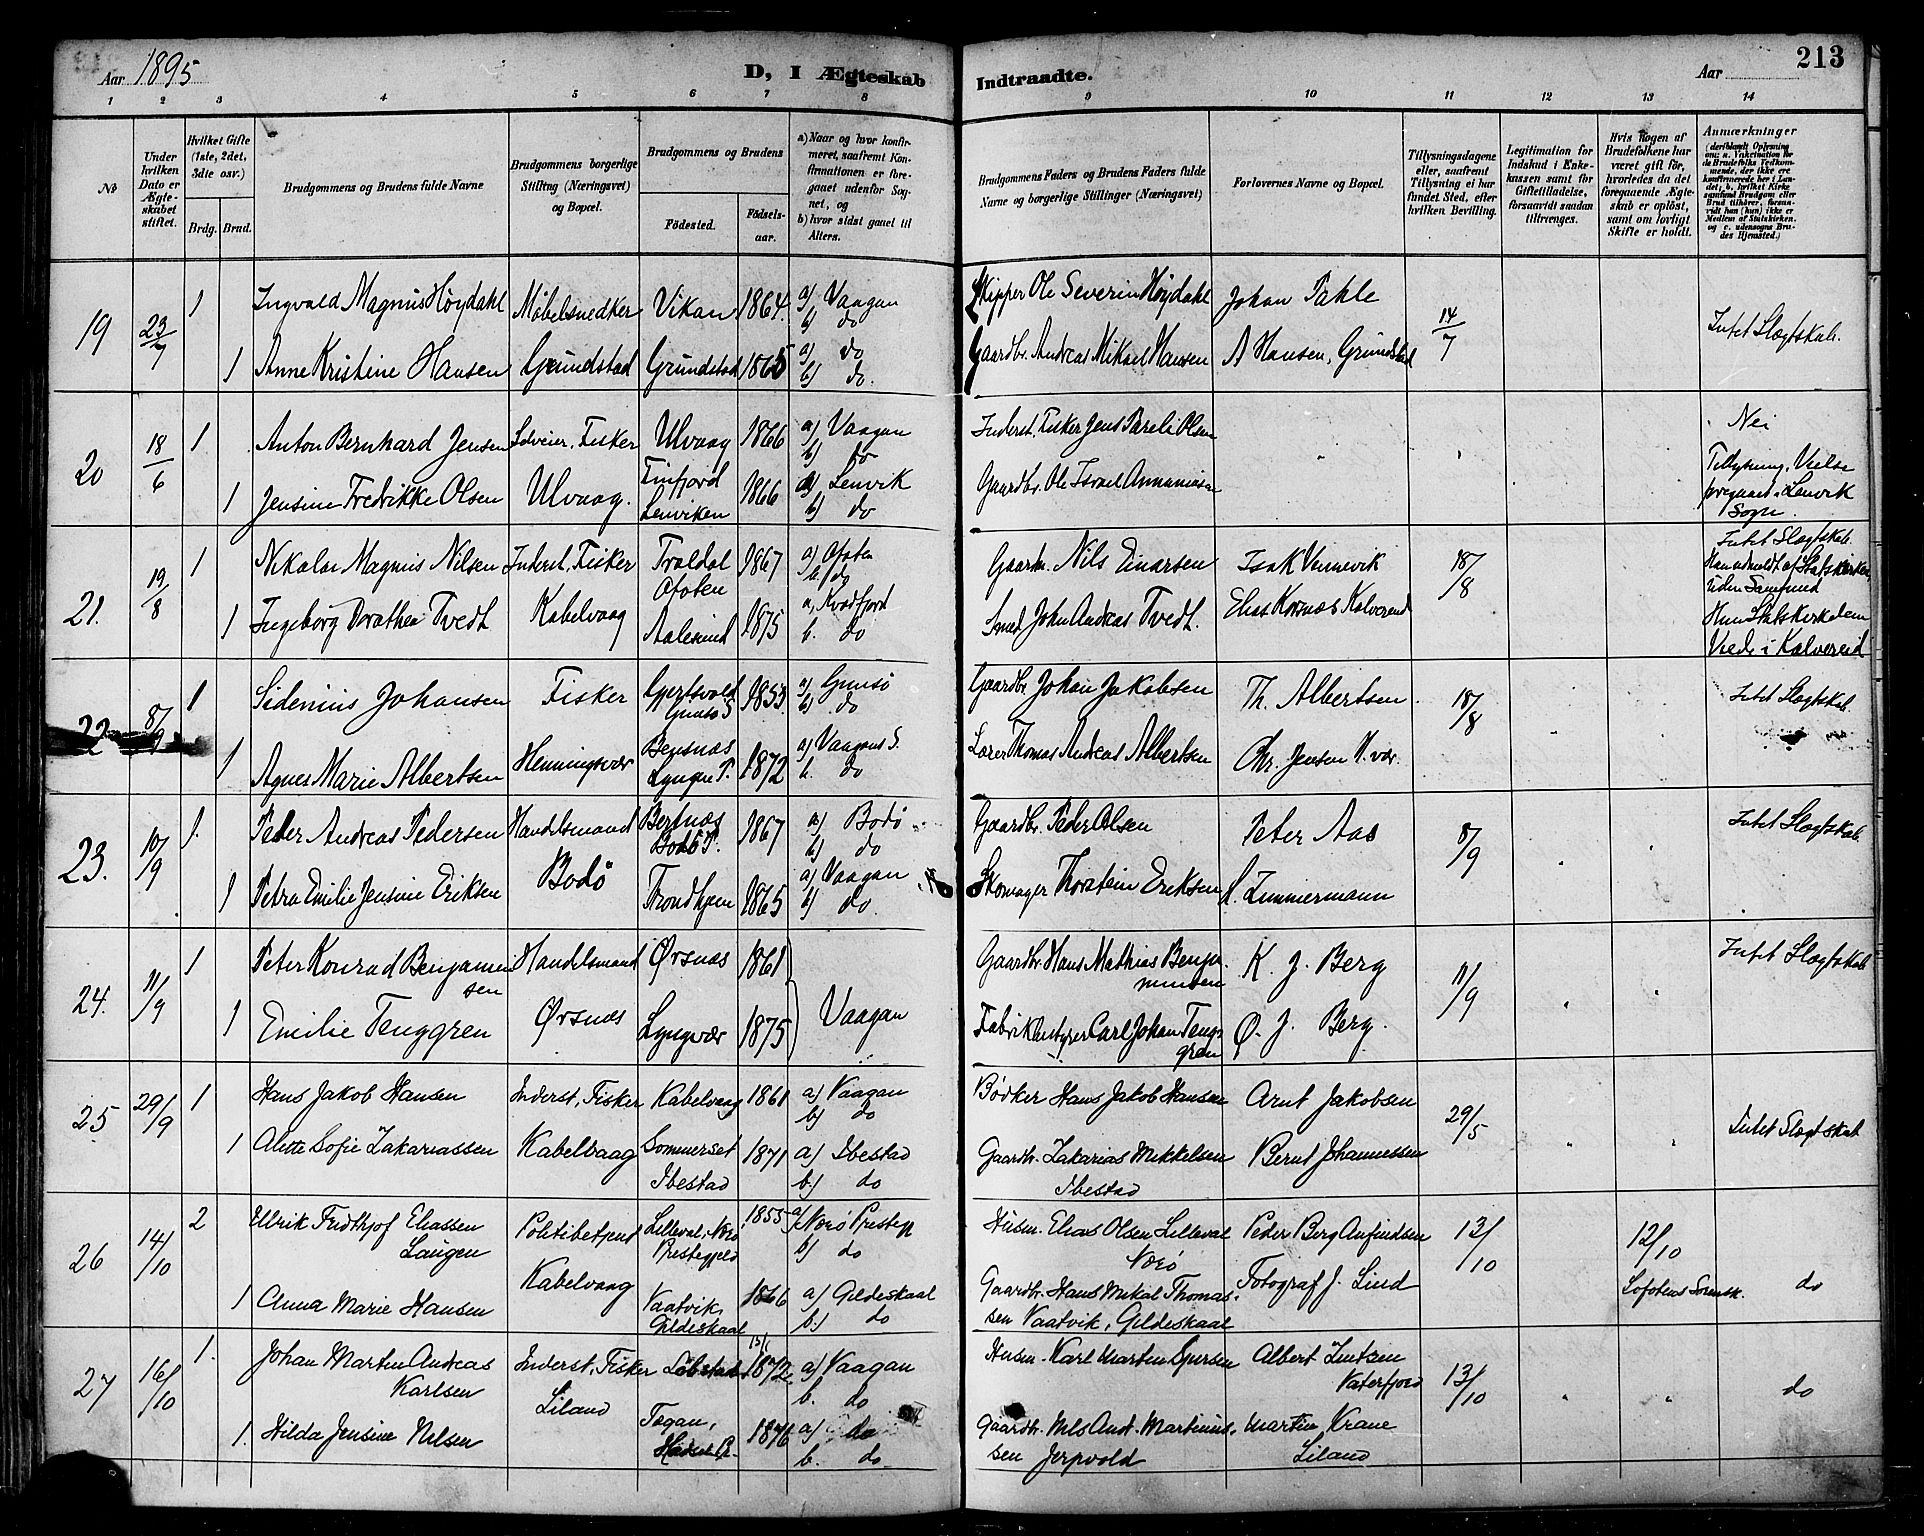 Aar 1895
D, I Ægteskab
Indtraadte.
Aar
213
1 2 3 4 5 6 7 8 9 10 11 12 13 14
No
Under hvilken Dato er Ægteskabet stiftet.
Hvilket Gifte (1ste, 2det, 3die osv.)
Brdg. Brud.
Brudgommens og Brudens fulde Navne
Brudgommens borgerlige Stilling (Næringsvei) og Bopæl.
Brudgommens og Brudens
Födested.
Födselsaar.
a) Naar og hvor konfirmeret, saafremt Konfirmationen er foregaaet udenfor Sognet, og
b) hvor sidst gaaet til Alters.
Brudgommens Faders og Brudens Faders fulde Navne og borgerlige Stillinger (Næringsvei)
Forlovernes Navne og Bopæl.
Tillysningsdagene eller, saafremt Tillysning ei har fundet Sted, efter hvilken Bevilling.
Legitimation for Indskud i Enkekassen samt for Giftetilladelse, forsaavidt saadan tiltrenges.
Hvis Nogen af Brudefolkene har været gift för, hvorledes da det foregaaende Ægteskab er oplöst, samt om lovligt Skifte er holdt.
Anmærkninger
(deriblandt Oplysning om: a. Vakcination for de Brudefolks Vedkommende, der ikke ere konfirmerede her i Landet; b. hvilket Kirkesamfund Brudgom eller Brud tilhörer, forsaavidt han (hun) ikke er Medlem af Statskirken, og c. udensogns Brudes Hjemsted.)
19 23/7 1 Ingvald Magnus Höydahl Møbelsnedker Vikan 1864 a) Vaagan b) do Skipper Ole Severin Høydahl Johan Pahle 14/7 Intet Slægtskab.
1 Anne Kristine Hansen Grundstad Grundstad 1865 a) do b) do. Gaardbr. Andreas Mikael Hansen A Hansen, Grundstad
20 18/6 1 Anton Bernhard Jensen Fisker Ulvaag 1866 a) Vaagan b) do Inderst. Fisker Jens Olsen Nei
1 Jensine Fredrikke Olsen Ulvaag. Finfjord Lenviken 1866 a) Lenvik b) do Gaardbr. Ole Israel Annaniasen Tillysning, Vielse foregaaet i Lenvik Sogn.
21. 19/8 1 Nikolai Magnus Nilsen Inderst, Fisker Traldal Ofoten 1867 a) Ofoten b) do Gaardm. Nils Einarsen Isak Vennevik 18/8 Intet Slægtskab. Han udmeldt af Statskirken, uden Samfund
1 Ingeborg Dorathea Tvedt Kabelvaag Aalesund 1875 a, Kvædfjord b. do Smed John Andreas Tvedt. Elias Kornæs Kalvereid Hun Statskirkelem Viede i Kalvereid
22 8/9 1 Sidenius Johansen Fisker Gjertsvold Gimsø S 1853 a) Gimsö b) do Gaardbr. Johan Jakobsen Th. Albertsen 18/8 Intet Slægtskab.
1 Agnes Marie Albertsen Henningsvær Bensnæs Lyngen P. 1872 a) Vaagans S. b. do Lærer Thomas Andreas Albertsen Chr. Jensen H.vær.
23. 10/9 1. Peder Andreas Pedersen Handelsmand Bertnæs Bodö P. 1867 a) Bodö b) do Gaardbr. Peder Olsen Peter Aas 8/9 Intet Slægtskab.
1 Petra Emilie Jensine Eriksen Bodö Trondhjem 1865 a) Vaagan b) do. Skomager Thorstein Eriksen Zimmermann
24. 11/9 1 Peter Konrad Benjaminsen Handelsmand Ørsnæs 1861 Gaardbr. Hans Mathias Benjaminsen K. J. Berg 11/9 Intet Slægtskab
1 Emilie Tenggren Ørsnæs Lyngvær 1875 Vaagan Fabrikbestyrer Carl Johan Tenggren Ø. J. Berg.
25 29/9 1 Hans Jakob Hansen Inderst, Fisker Kabelvaag 1861 a) Vaagan b) do Bødker Hans Jakob Hansen Arnt Jakobsen 29/5 Intet Slægtskab
1 Alette Sofie Zakariassen Kabelvaag Sommerset Ibestad 1871 a) Ibestad b.) do Gaardbr. Zakarias Mikkelsen Ibestad Bernt Johannessen
26 14/10 2 Ulrik Fridthjof Eliassen Laugen Politibetjent Lilleval, Nærø Prestegjeld 1855 a) Nærö Prestegj b) do Husm. Elias Olsen Lilleval Nærö Peder Berg Anfindsen 13/10 12/10 Lofotens Sorensk. do
1 Anna Marie Hansen Kabelvaag Vaatvik, Gildeskaal 1866 a) Gildeskaal b.) do Gaardbr. Hans Mikal Thomassen Vaatvik, Gildeskaal Fotograf J. Lind
27 16/10 1. Johan Martin Andreas Karlsen Inderst, Fisker 1872 a) Vaagan b. do Husm. Karl Martin Karlsen Albert Lintzen Vaterfjord 13/10 do
1. Hilda Jensine Nilsen Liland 1876 a) do b. do Gaardbr. Nils And. Martinussen Jerpvold Martin Krane Liland